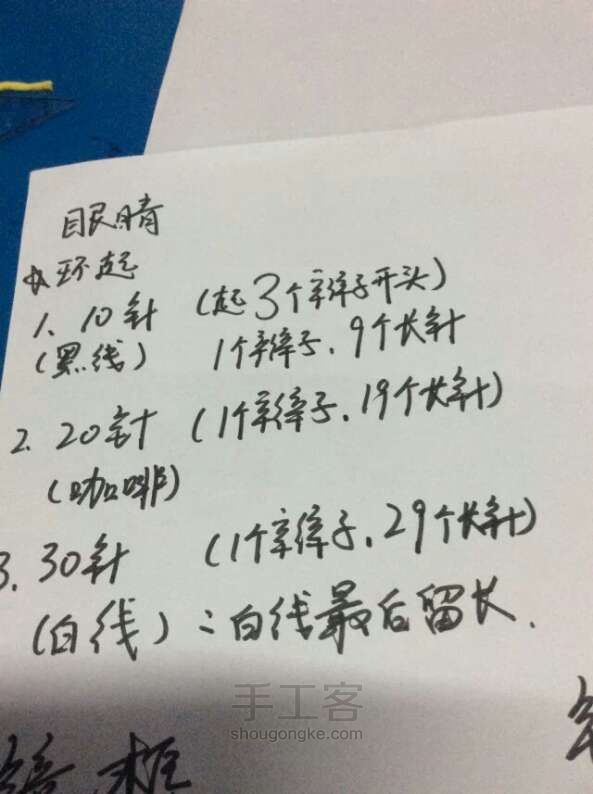 眼睛
环起
1、10针 (起3个辫子开头)
(黑线) 1个辫子、9个长针
2、20针 (1个辫子、19个长针)
(咖啡)
3、30针 (1个辫子、29个长针)
(白线):白线最后留长、
手工客
shougongke.com
框